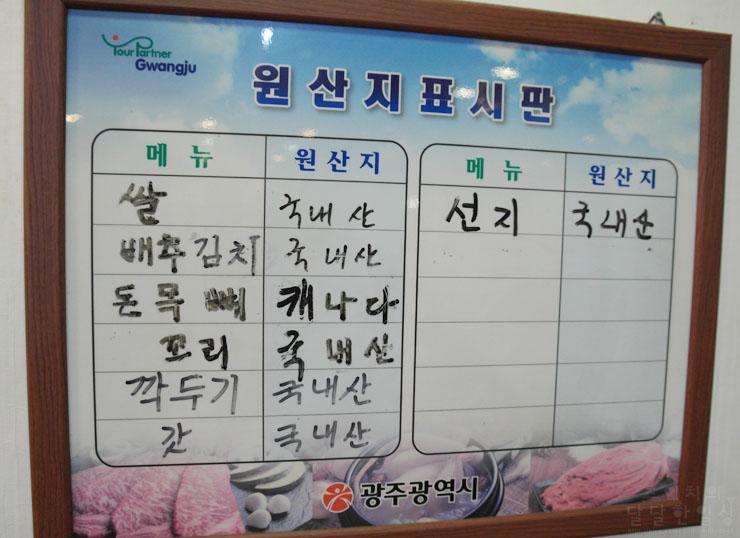 Your Partner
Gwangju
원산지표시판
메뉴 원산지
쌀 국내산
배추김치 국내산
돈목뼈 캐나다
꼬리 국내산
깍두기 국내산
갓 국내산
메뉴 원산지
선지 국내산
광주광역시
달달한일상